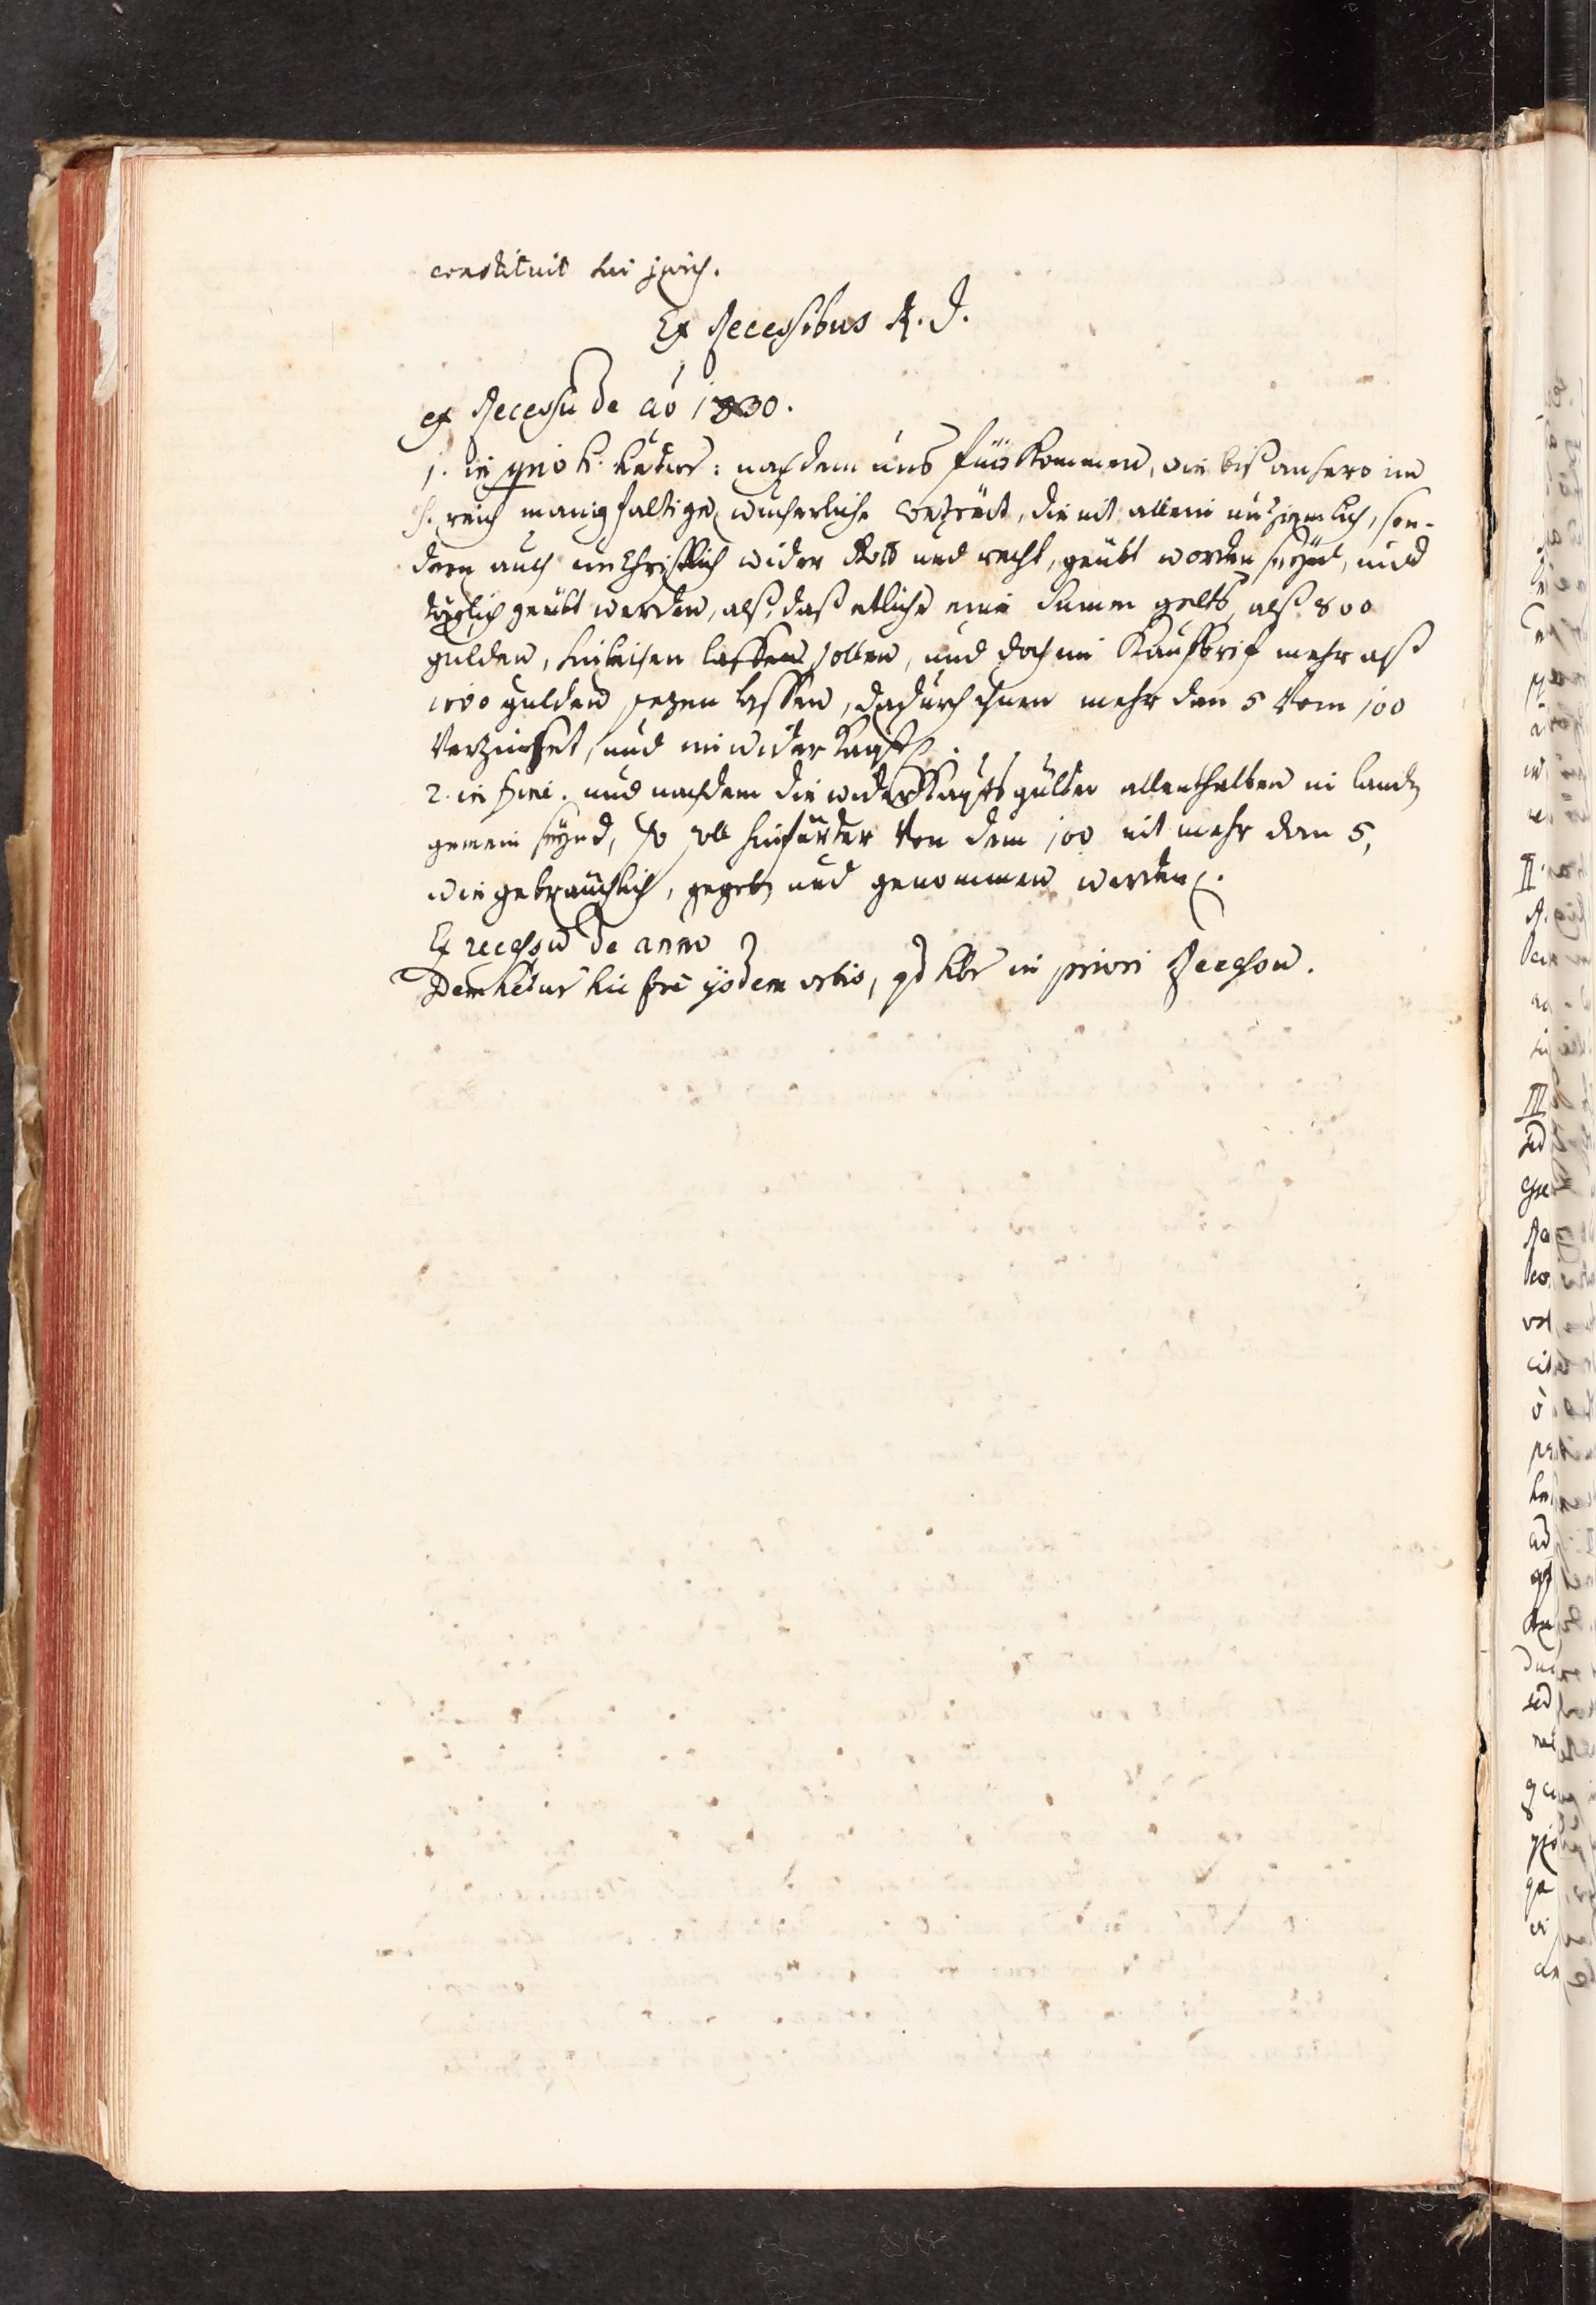 constituit hîc jurisc.
Ex Recessibus R. I.
ex Recessu de aõ 1530.
1. in prĩo h. hetur: nach dem uns fürkommen, wie biß anhero im
h. reich manigfaltige wucherliche Conträct, die nit allein unziemlich, son-
dern auch unChristlich wider Gott und recht, geübt worden seynd, und
täglich geübt werden, alß, daß etliche eine Summ gelts, alß 800
gulden, hinleihen sollen, und doch im Kauffbrif mehr alß
1000 gulden sezen lassen, dadurch ihnen mehr dan 5 vom 100
verzinset, und im widerkauff
2. in fine. und nachdem die widerkauffs gülten allenthalben in landen
gemein seynd, so soll hinfürter von dem 100 nit mehr dan 5,
wie gebräuchlich, gegeben und genommen werden.
Ex recessu de anno
Dem hetur hîc ferè ijsdem verbis, qd hbr in priori Recessu.